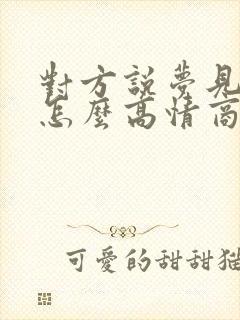 對方說夢見
怎麼高情商
可愛的甜甜貓